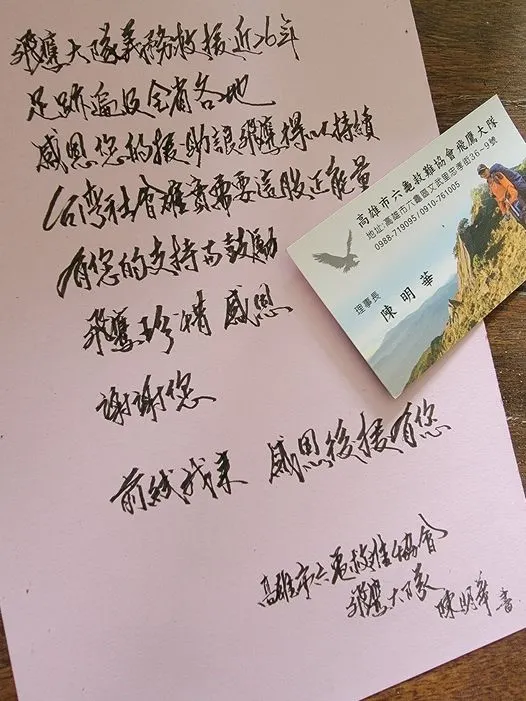 飛鷹大隊義務救援近26年
足跡遍及全省各地
感恩您的援助讓飛鷹得以持續
台灣社會確實需要這股正能量
有您的支持和鼓勵
飛鷹珍惜 感恩
謝謝您
前線我來 感恩後援有您
高雄市六龜救難協會
飛鷹大隊 陳明華 書
高雄市六龜救難協會飛鷹大隊
地址:高雄市六龜區文武里忠孝街36-9號
0988-719095/0910-761005
理事長
陳明華